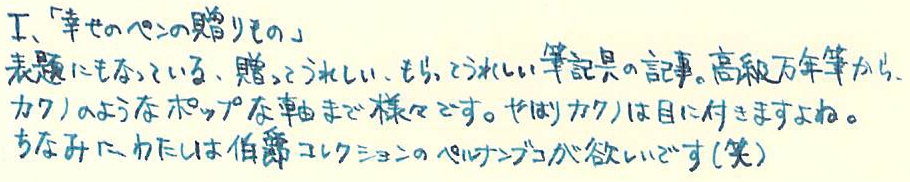 I、「幸せのペンの贈りもの」
表題にもなっている、贈ってうれしい、もらってうれしい筆記具の記事。高級万年筆から、
カクノのようなポップな軸まで様々です。やはりカクノは目に付きますよね。
ちなみにわたしは伯爵コレクションのペルナンブコが欲しいです(笑)